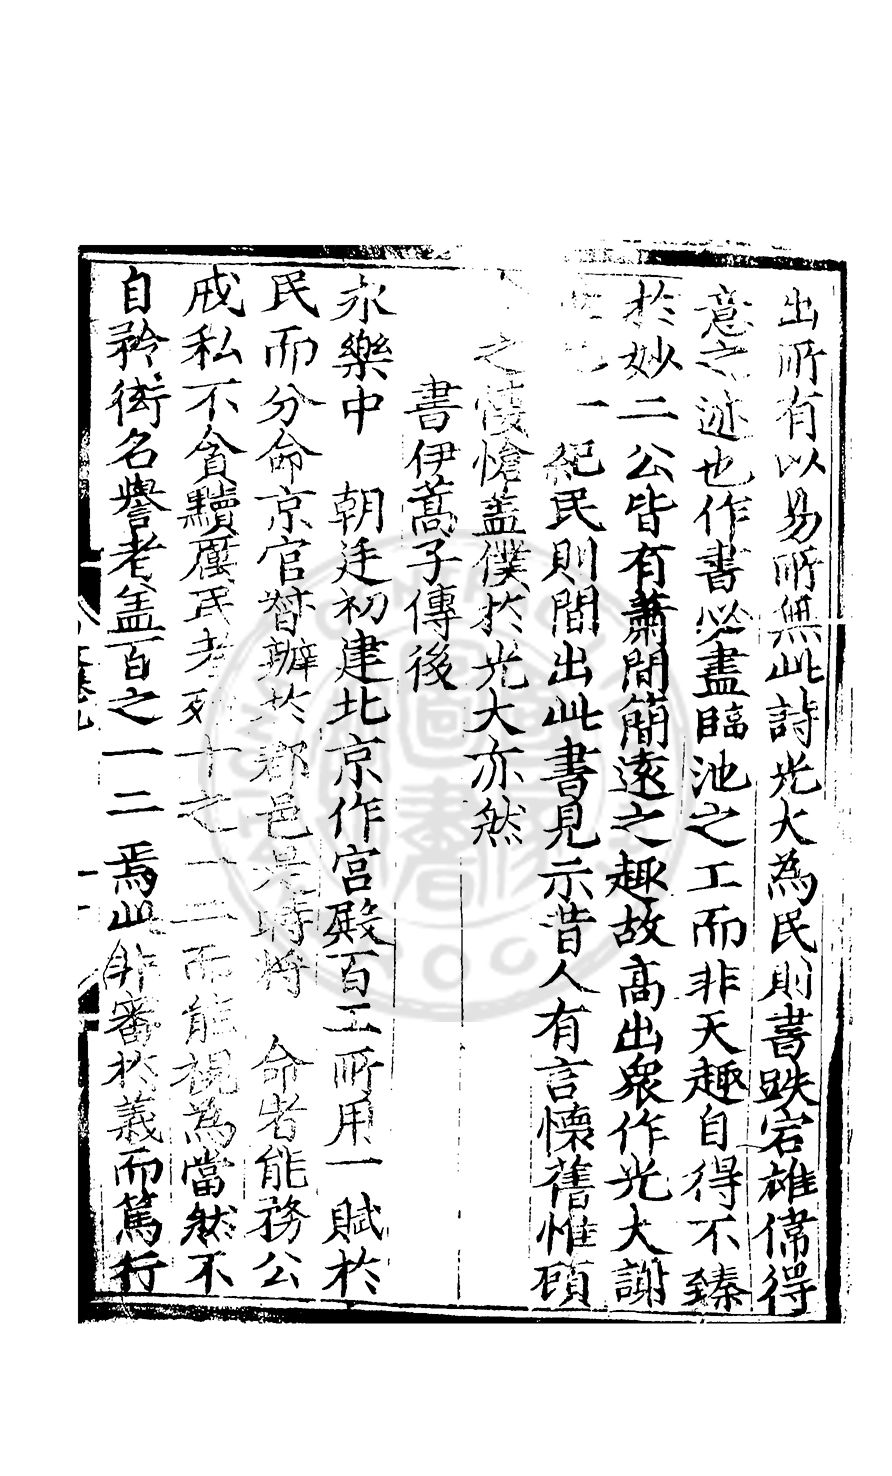 出所有以易所無此詩光大為民則書跌宕雄偉得
意之迹也作書必盡臨池之工而非天趣自得不臻
於妙二公皆有蕭閒簡遠之趣故高出眾作光大謝
一紀民則間出此書見示昔人有言懷舊惟碩
之悽愴盖僕於光大亦然
書伊蒿子傳後
永樂中 朝廷初建北京作宮殿百工所用一賦於
民而分命京官督辦於郡邑是時將 命者能務公
戒私不貪黷厲民者死十之一二而能視為當然不
自矜衒名譽者盖百之一二焉此非審於義而篤行